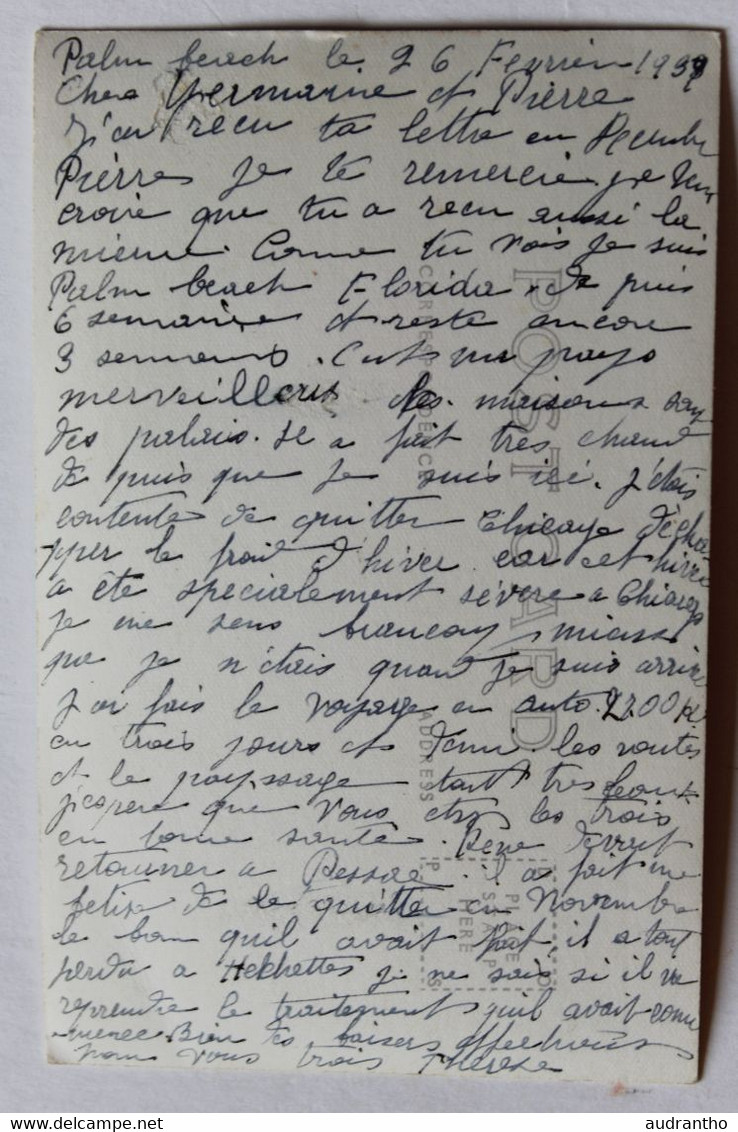 Palm beach le 26 Fevrier 1939
Chere Germaine et Pierre
J'ai recu ta lettre en Decembre
Pierre je te remercie je veux
croire que tu a recu aussi la
mienne. Come tu vois je suis
Palm beach Florida depuis
6 semaines et reste encore
3 semaines. C'est un pays
merveilleus les maisons son
des palais. Il a fait tres chaud
de puis que je suis ici. J'étais
contente de quitter Chicago d'écha
pper le froid d'hiver car cet hiver
a été specialement sévère a Chicago
je me sens beaucoup mieux
que je n'étais quand je suis arrivé
J'ai fais le voyage en auto. 2700 K
en trois jours et demi les routes
et le payssage tout tres beaux
j'espere que vous etes les trois
en bonne santé. Rene devrait
retourner a Pessac il a fait une
betise de le quitter en Novembre
le bon qu'il avait fait il a tout
perdu a Hekhettes je ne sais si il va
reprendre le traitement qu'il avait com
mencé. Bien des baisers affectueus
pour vous trois Therese
POST CARD
CORRESPONDENCE
ADDRESS
PLACE
STAMP
HERE
audrantho